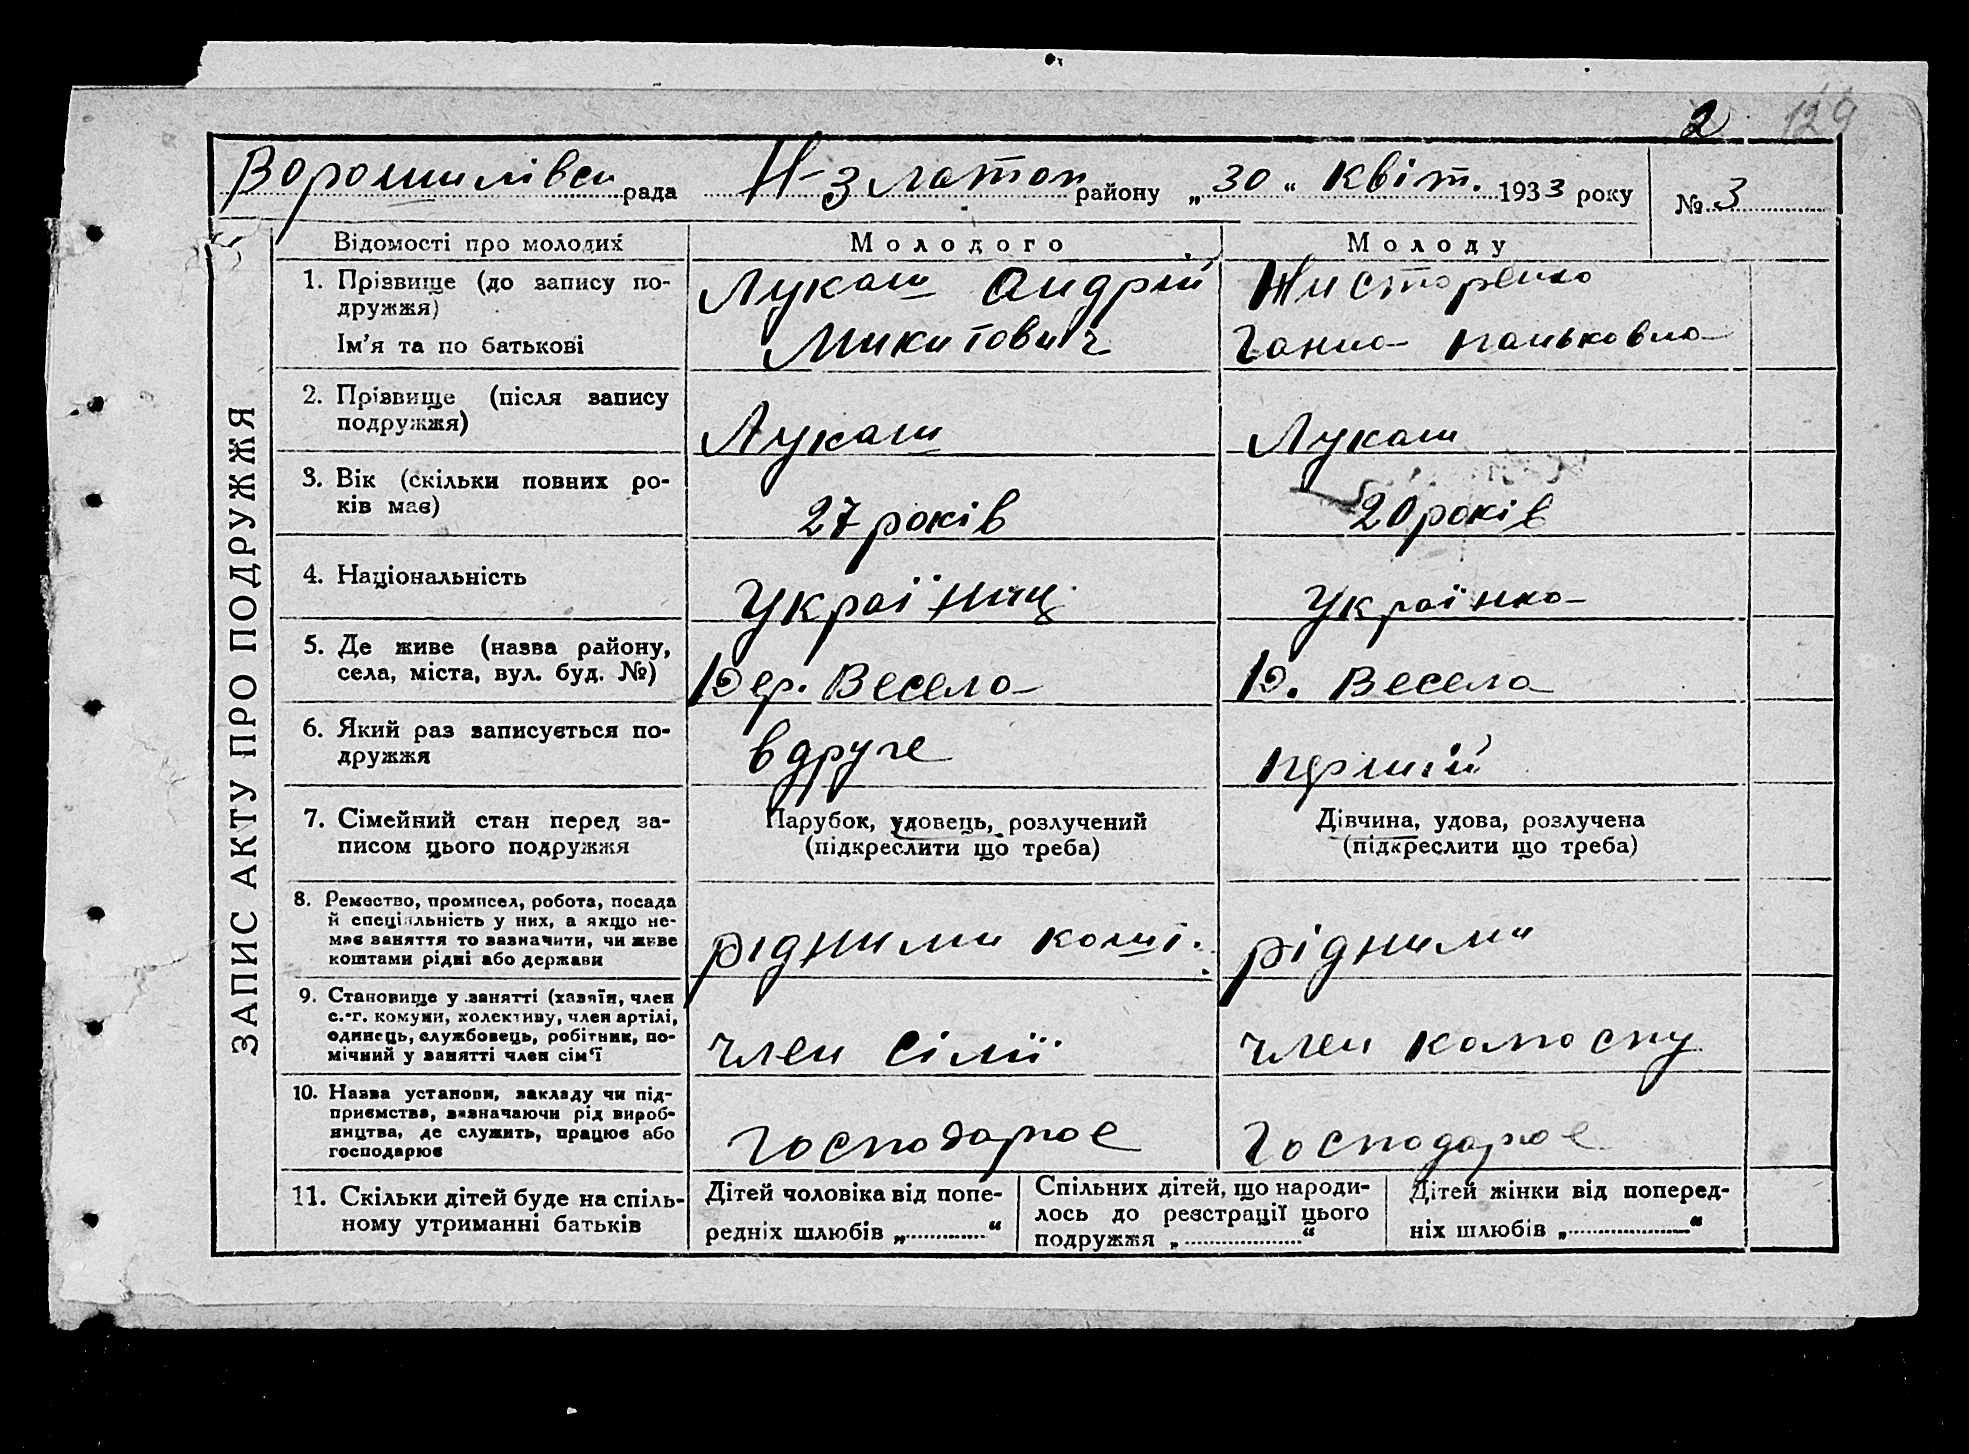 2 129
Ворошилівск рада Н-златоп району „30“ квіт. 1933 року № 3
ЗАПИС АКТУ ПРО ПОДРУЖЖЯ
Відомості про молодих
Молодого
Молоду
1. Прізвище (до запису по-
дружжя)
Ім'я та по батькові
Лукаш Андрій
Микитович
Ганна Паньковна
2. Прізвище (після запису
подружжя)
Лукаш
Лукаш
3. Вік (скільки повних ро-
ків має)
27 років
20 років
4. Національність
Українец
Українка
5. Де живе (назва району,
села, міста, вул. буд. №)
Дер. Весела
Д. Весела
6. Який раз записується по-
дружжя
вдруге
перший
7. Сімейний стан перед за-
писом цього подружжя
Парубок, удовець, розлучений
(підкреслити що треба)
Дівчина, удова, розлучена
(підкреслити що треба)
8. Ремество, промисел, робота, посада
й спеціяльність у них, а якщо не-
має заняття то зазначити, чи живе
коштами рідні або держави
рідними кошт.
рідними
9. Становище у занятті (хазяїн, член
с.-г. комуни, колективу, член артілі,
одинець, службовець, робітник, по-
мічний у занятті член сім'ї
член сімії
член
10. Назва установи, закладу чи під-
приємства, зазначаючи рід вироб-
ництва, де служить, працює або
господарює
господарює
господарює
11. Скільки дітей буде на спіль-
ному утриманні батьків
Дітей чоловіка від попе-
редніх шлюбів „..............“
Спільних дітей, що народи-
лось до реєстрації цього
подружжя „..................“
Дітей жінки від поперед-
ніх шлюбів „..................“